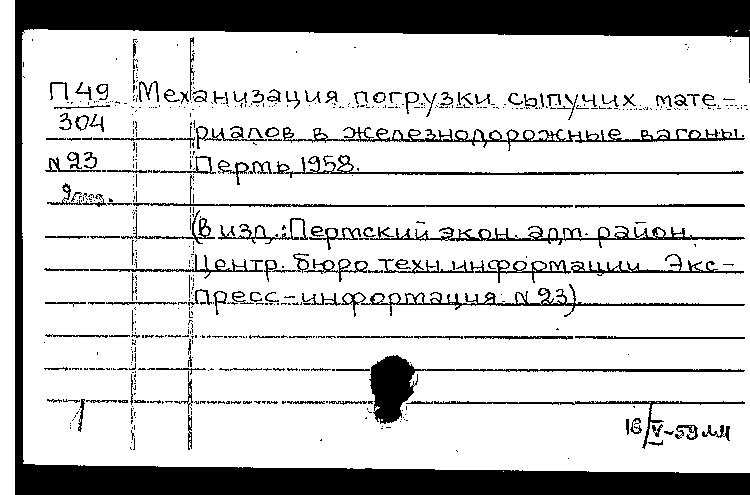 П49 Механизация погрузки сыпучих мате-
304 риалов в железнодорожные вагоны.
N23 Пермь, 1958.
(В изд.: Пермский экон. адм. район.
Центр. бюро техн. информации. Экс-
пресс-информация. N 23).
1
16/V-59 мм